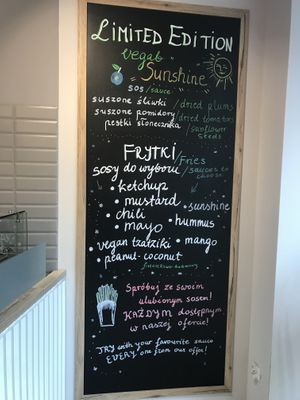 LIMITED EDITION
vegab
Sunshine
SOS /sauce/
suszone śliwki /dried plums
suszone pomidory /dried tomatoes
pestki słonecznika /sunflower seeds
FRYTKI /Fries
SOSY do wyboru /sauces to choose
• ketchup
• mustard • sunshine
• chili
• mayo • hummus
• vegan tzatziki • mango
• peanut-coconut
Spróbuj ze swoim
ulubionym sosem!
KAŻDYM dostępnym
w naszej ofercie!
TRY with your favourite sauce
EVERY one from our offer!